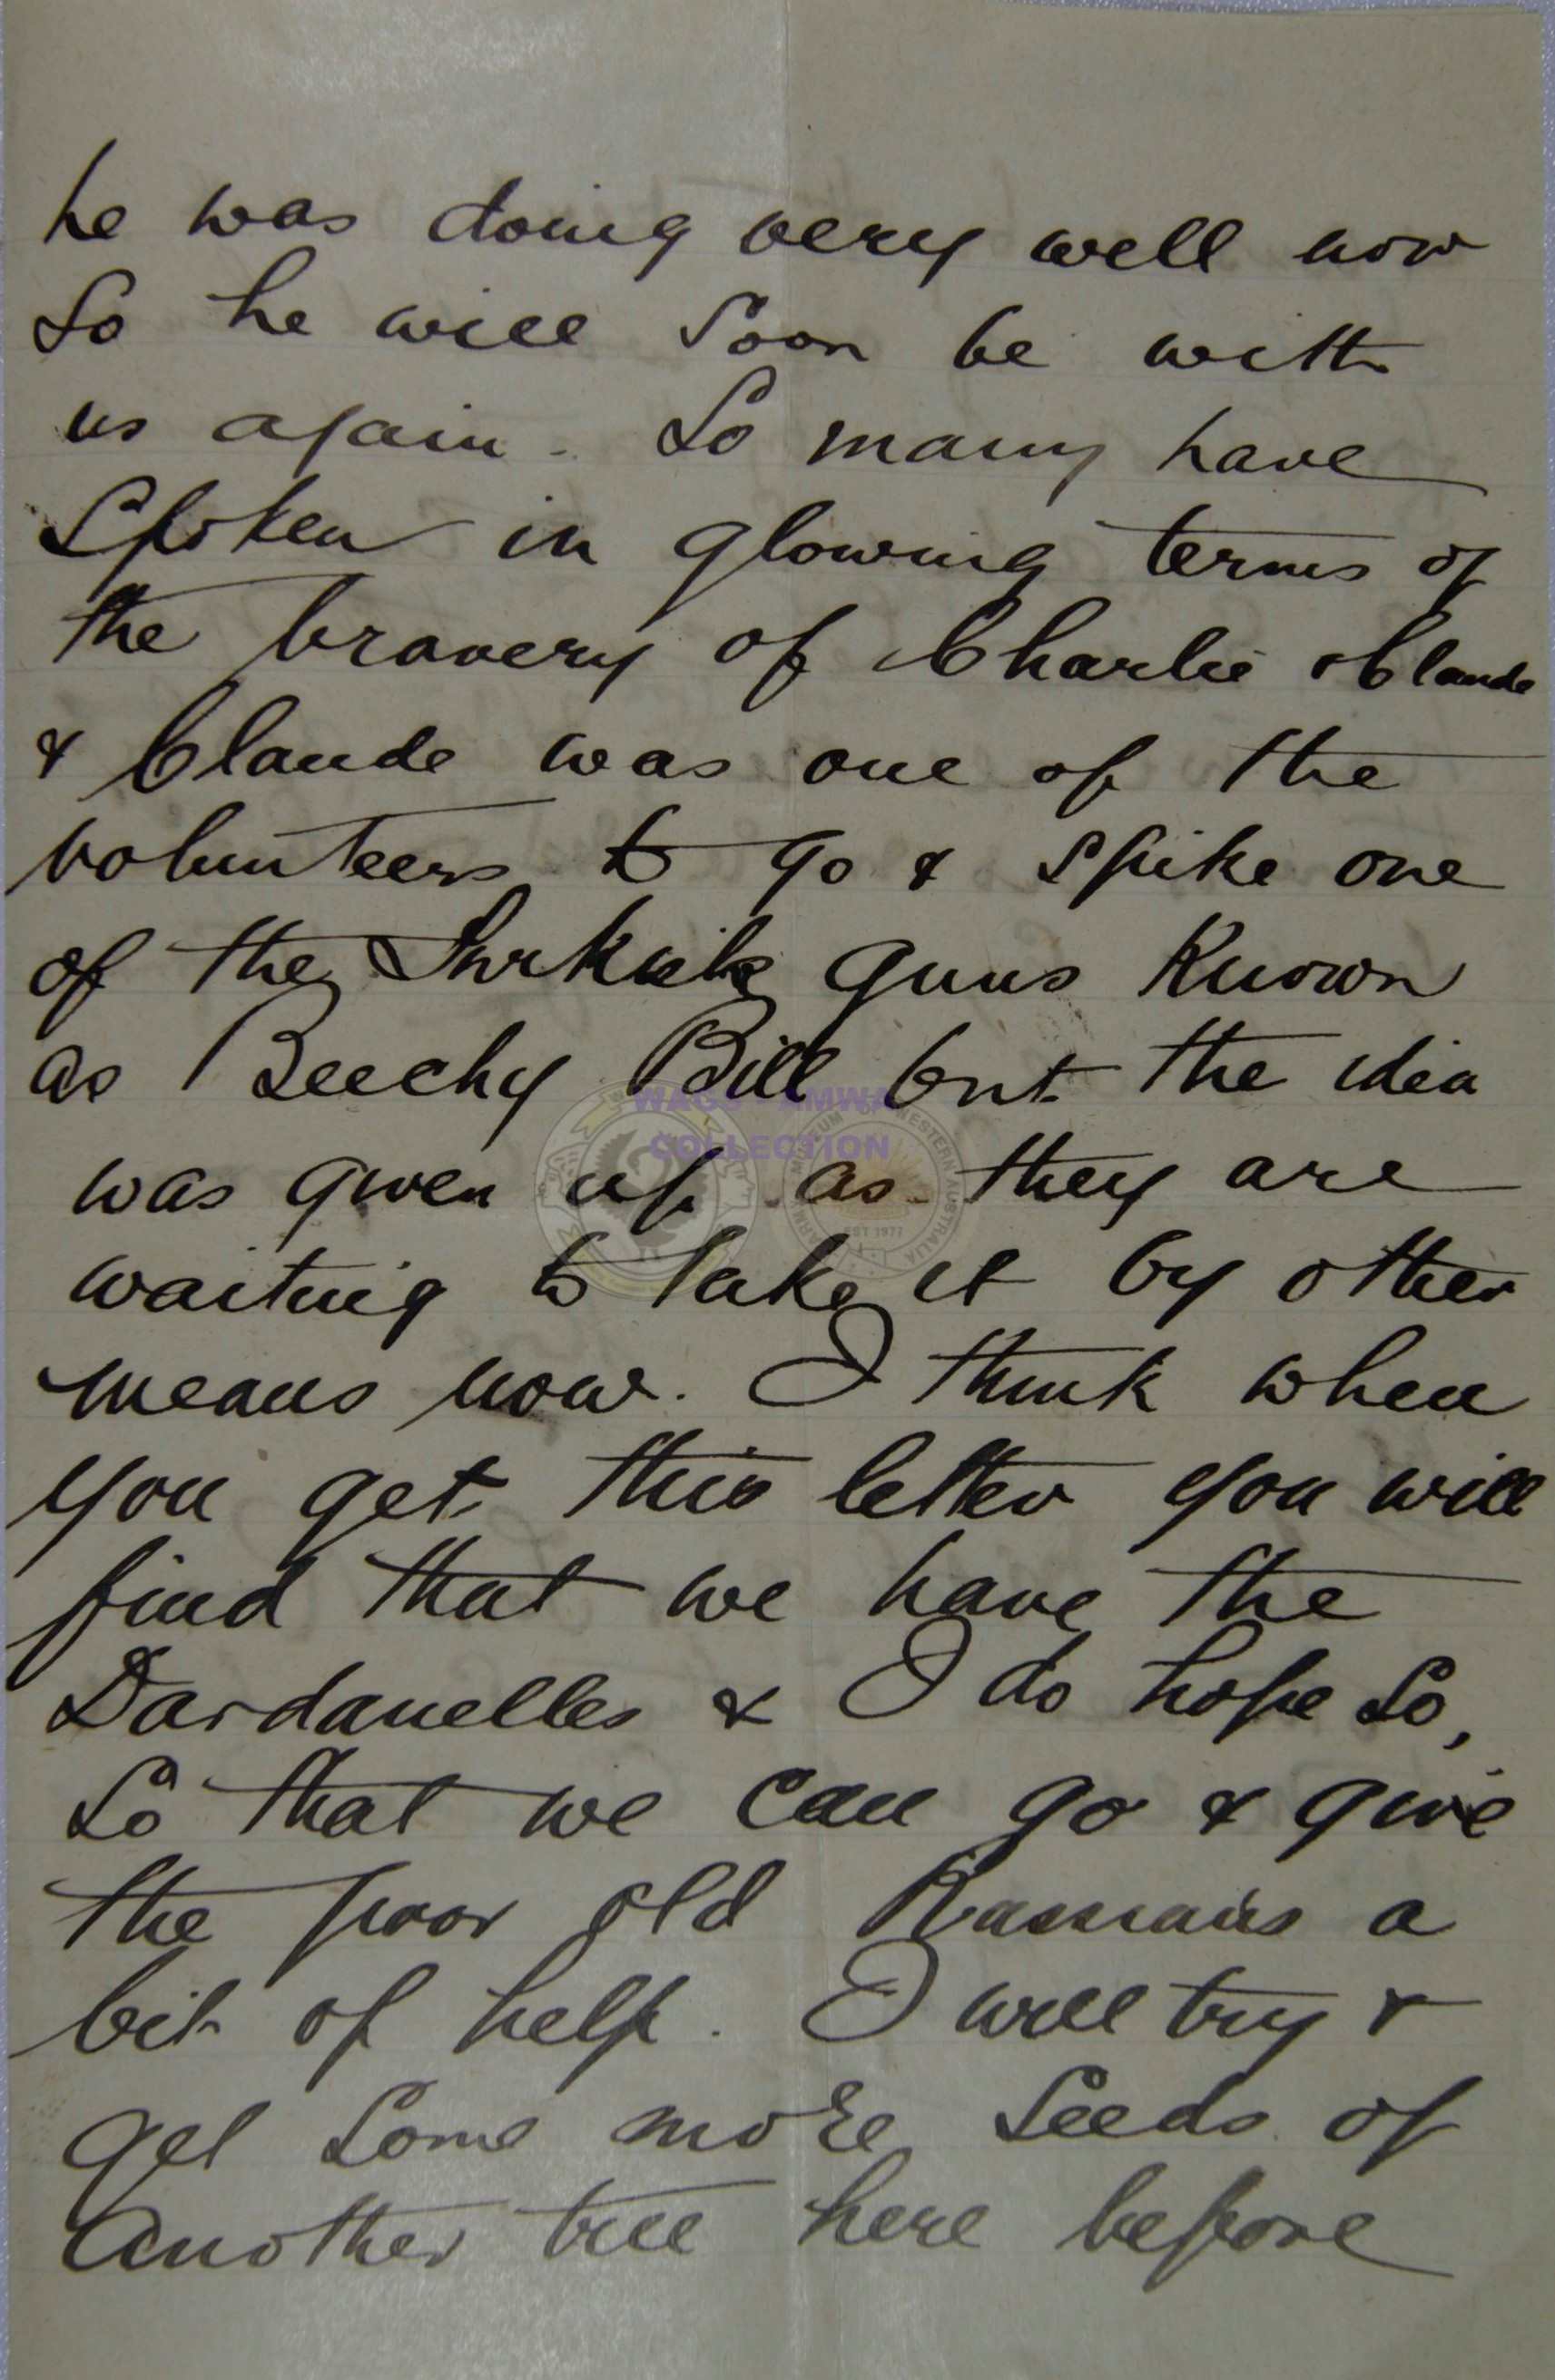 he was doing very well now
So he will Soon be with
us again. So many have
Spoken in glowing terms of
the bravery of Charlie & Claude
& Claude was one of the
volunteers to go & spike one
of the guns Known
as Beechy Bill but the idea
was given up as they are
waiting to take it by other
means now. I think when
you get this letter you will
find that we have the
Dardanelles & I do hope So,
So that we can go & give
the poor old a
bit of help. I will try &
get Some more Seeds of
another tree here before
WAGS - AMWA
COLLECTION
ARMY MUSEUM OF WESTERN AUSTRALIA
EST 1977